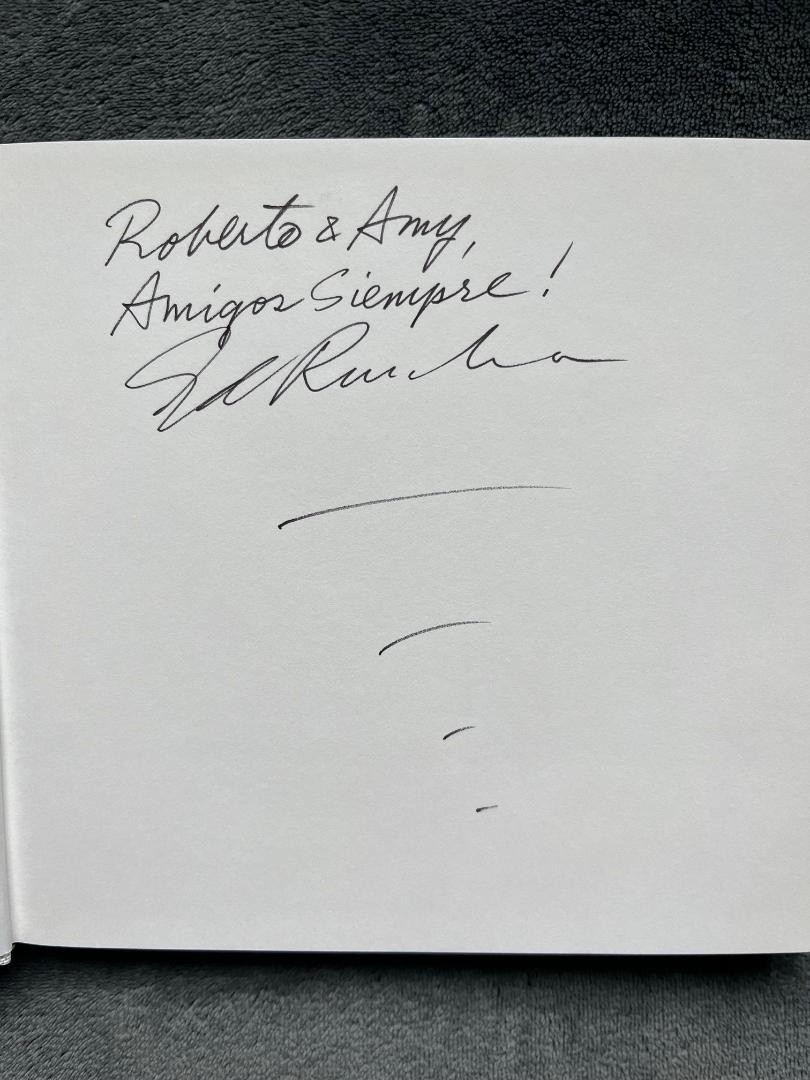 Roberto & Amy,
Amigos Siempre!
Ed Ruscha